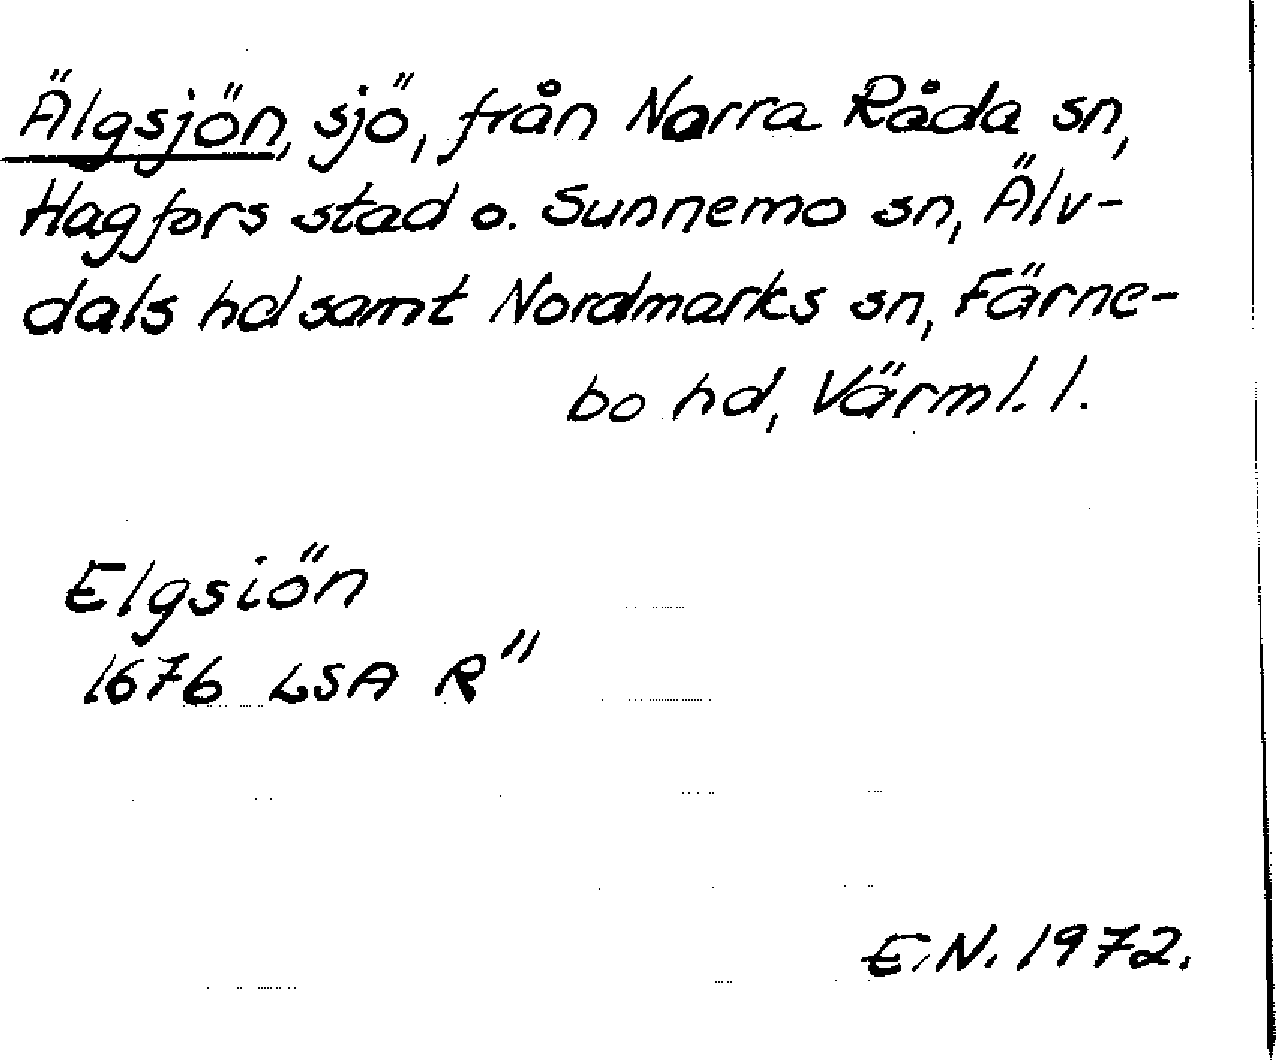 Älgsjön, sjö, från Norra Råda sn,
Hagfors stad o. Sunnemo sn, Älv-
dals hd samt Nordmarks sn, Färne-
bo hd, Värml. l.
Elgsiön
1676 LSA R"
E.N. 1972.